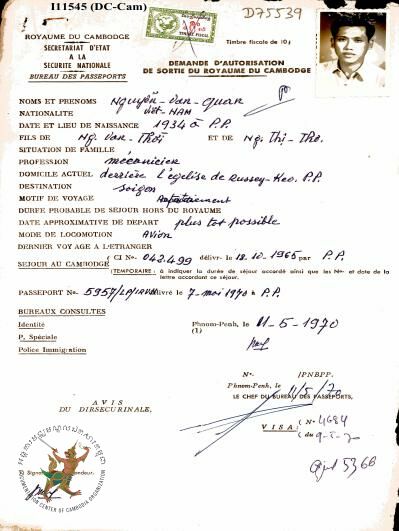 I11545 (DC-Cam)
D75539
ROYAUME DU CAMBODGE
SECRETARIAT D'ETAT
A LA
SECURITE NATIONALE
BUREAU DES PASSEPORTS
Timbre fiscale de 10j
DEMANDE D'AUTORISATION
DE SORTIE DU ROYAUME DU CAMBODGE
NOMS ET PRENOMS Nguyễn-Van-Quan
NATIONALITE Viêt-NAM
DATE ET LIEU DE NAISSANCE 1934 à P.P.
FILS DE Ng. Van-Thôi ET DE Ng. Thi-Tho.
SITUATION DE FAMILLE
PROFESSION mécanicien
DOMICILE ACTUEL derrière l'église de Russey-Keo. P.P.
DESTINATION Saigon
MOTIF DE VOYAGE Rapatriement
DUREE PROBABLE DE SEJOUR HORS DU ROYAUME
DATE APPROXIMATIVE DE DEPART plus tôt possible
MODE DE LOCOMOTION Avion
DERNIER VOYAGE A L'ETRANGER
SEJOUR AU CAMBODGE ( CI No 042.499 délivr. le 12.10-1965 par P.P.
(TEMPORAIRE : à indiquer la durée de séjour accordé ainsi que les No. et date de la
lettre accordant ce séjour.
PASSEPORT No. 5957/ livré le 7-mai 1970 à P.P.
BUREAUX CONSULTES
Identité
Phnom-Penh, le 11-5-1970
(1)
P. Spéciale
Police Immigration
No. /PNBPP.
Phnom-Penh, le 11/5/70
LE CHEF DU BUREAU DES PASSEPORTS,
AVIS
DU DIRSECURINALE,
VISA (No 4684
(du 9-5-70
5366
DOCUMENTATION CENTER OF CAMBODIA ORGANIZATION